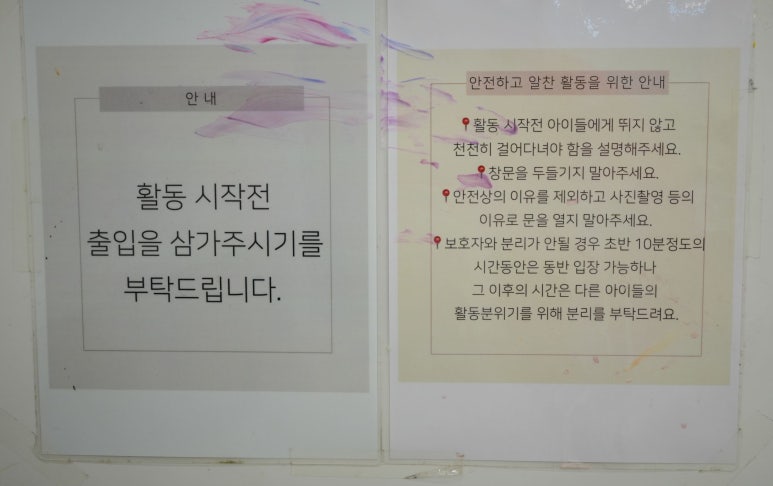 안 내
활동 시작전
출입을 삼가주시기를
부탁드립니다.
안전하고 알찬 활동을 위한 안내
활동 시작전 아이들에게 뛰지 않고
천천히 걸어다녀야 함을 설명해주세요.
창문을 두들기지 말아주세요.
안전상의 이유를 제외하고 사진촬영 등의
이유로 문을 열지 말아주세요.
보호자와 분리가 안될 경우 초반 10분정도의
시간동안은 동반 입장 가능하나
그 이후의 시간은 다른 아이들의
활동분위기를 위해 분리를 부탁드려요.